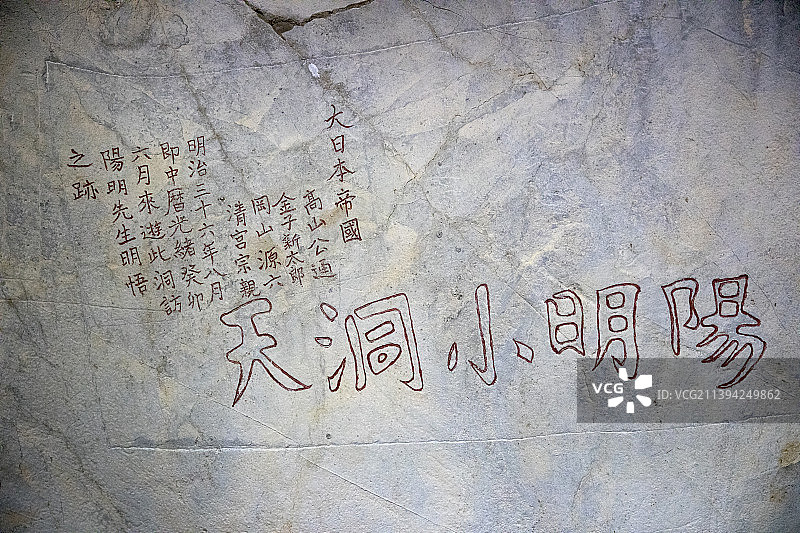 陽明小洞天
大日本帝國
高山公通
金子新太郎
岡山源六
清宮宗親
明治三十六年八月
即中曆光緒癸卯
六月來遊此洞訪
陽明先生明悟
之跡
VCG
VCG.COM
ID:VCG211394249862